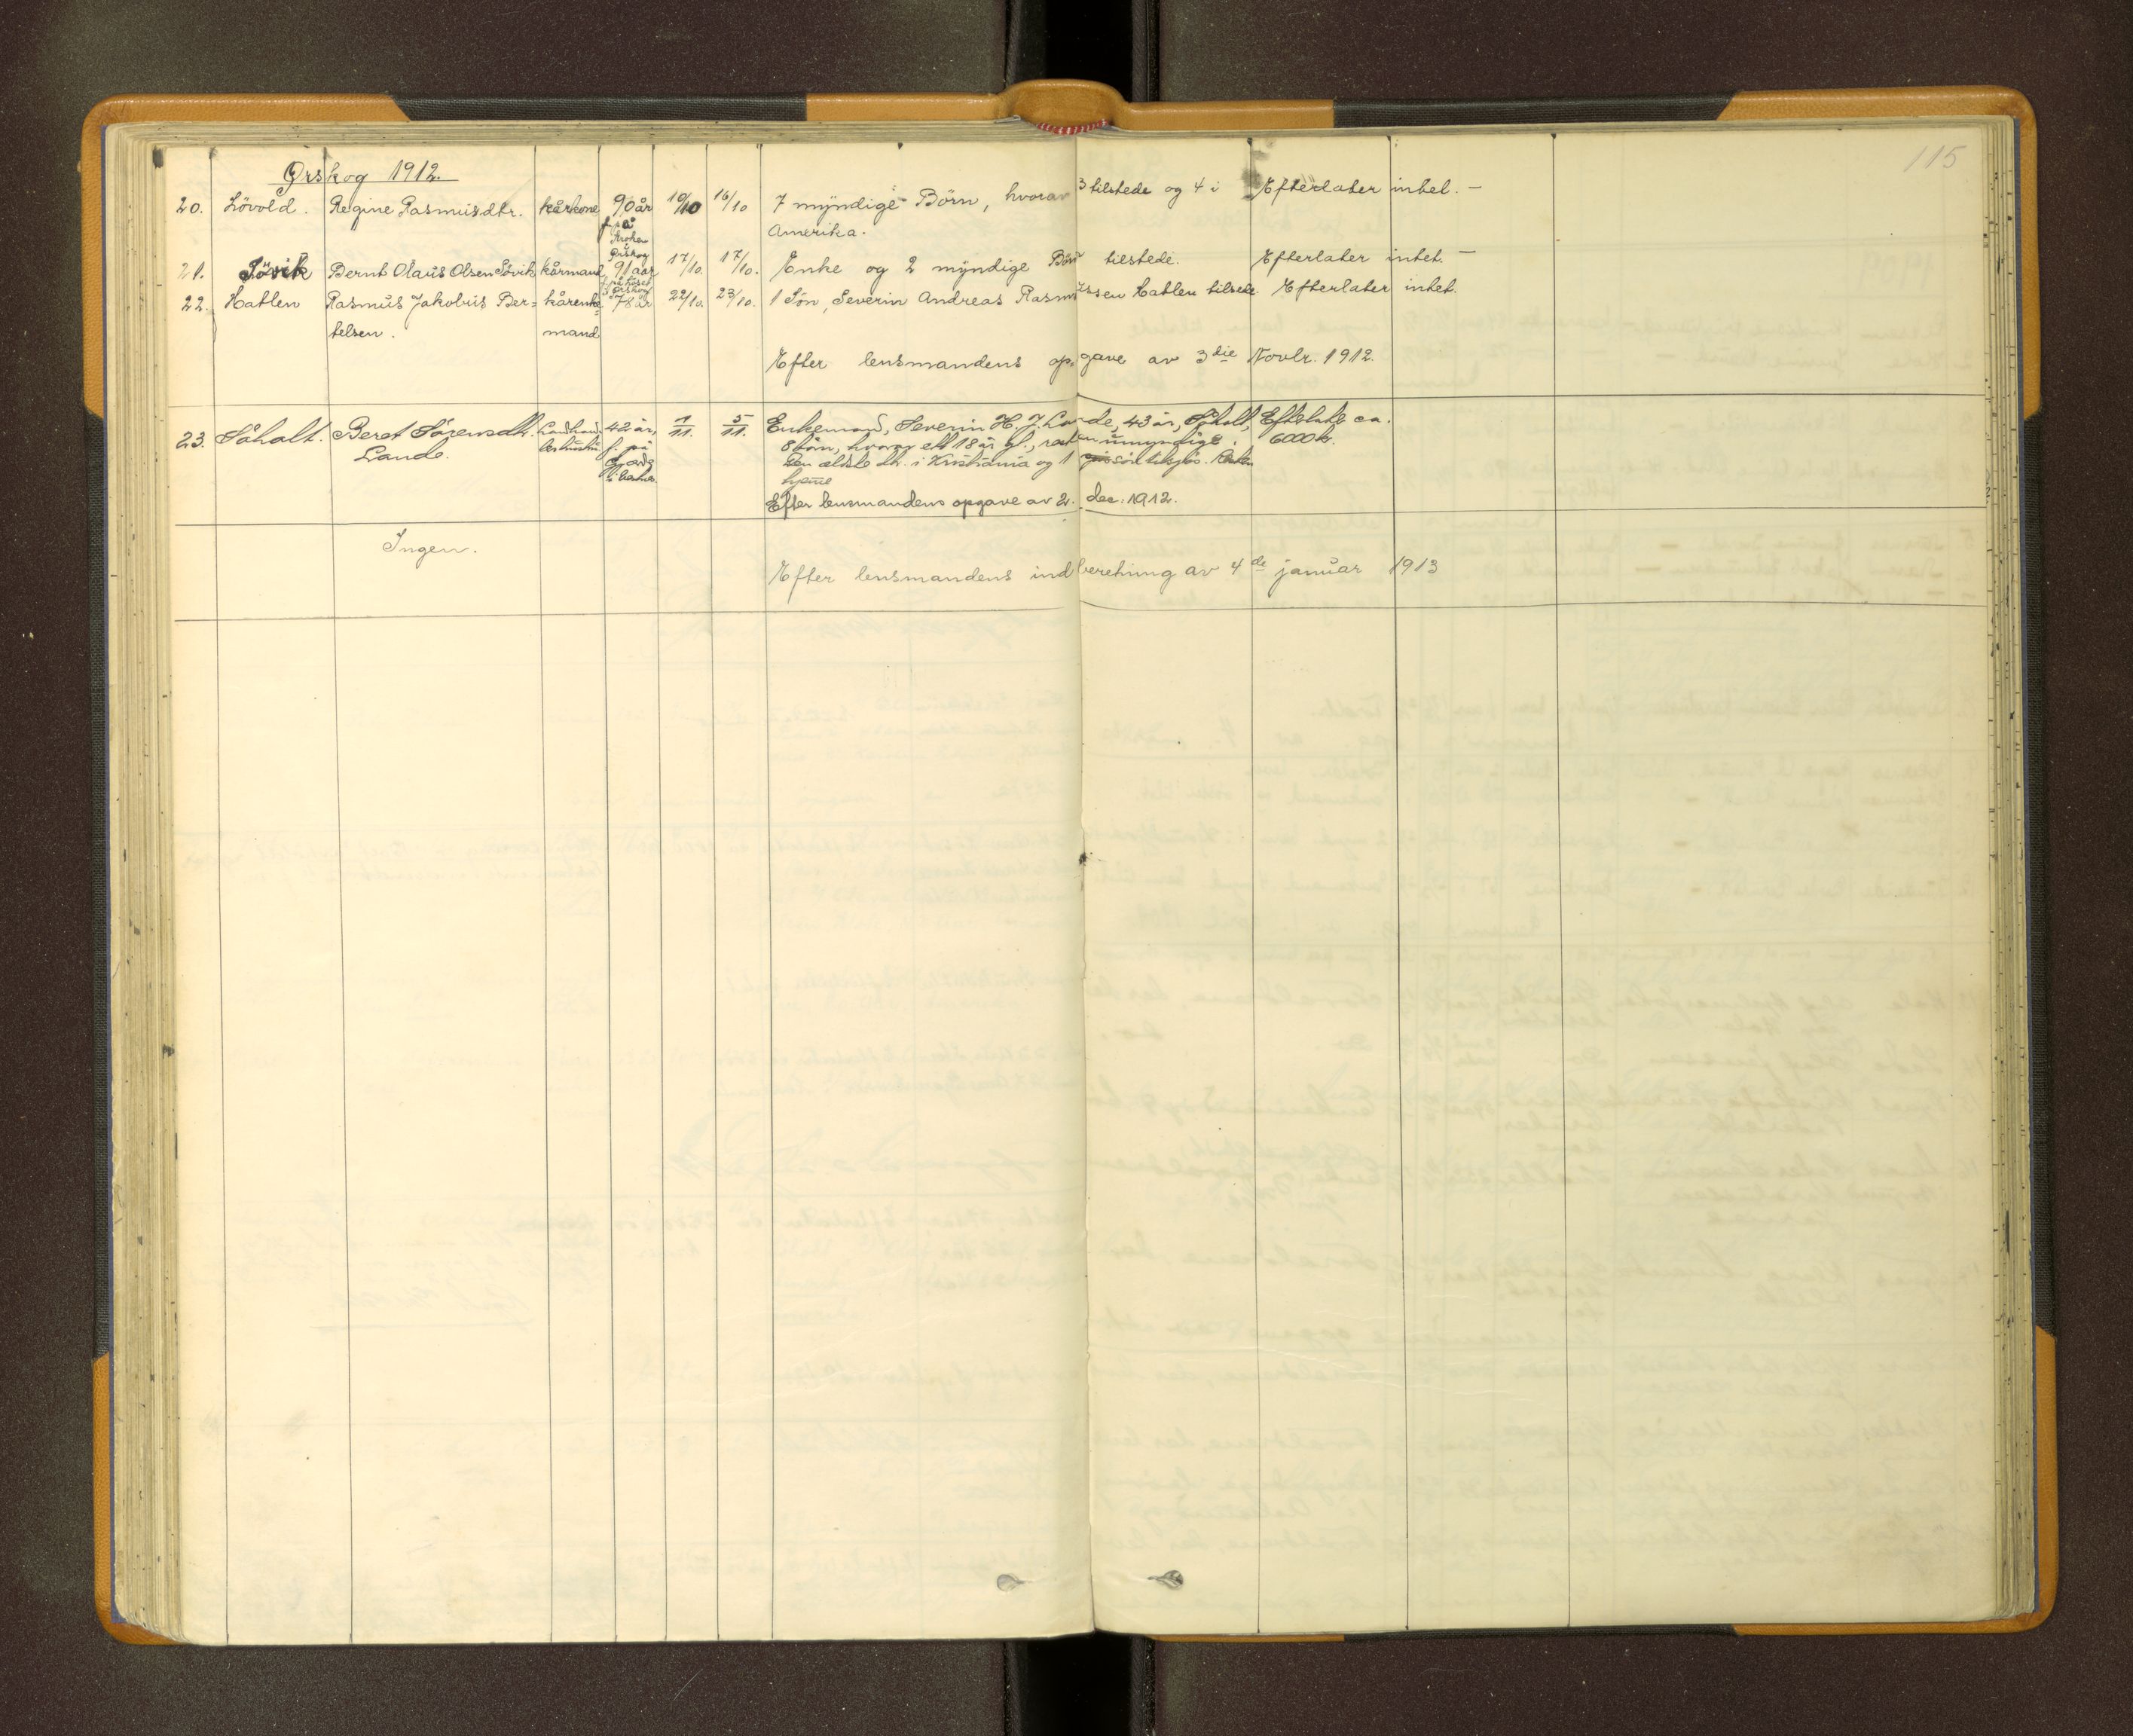 115
Ørskog 1912.
20. Lövold. Regine Rasmusdtr. kårkone 90 år 10/10 16/10 7 myndige Börn, hvorav 3 tilstede og 4 i Efterlater intet. —
f. på
Amerika.
Ørskog
21. Sövik Bernt Olaus Olsen Sövik kårmand 91 aar 17/10. 17/10. Enke og 2 myndige Börn tilstede. Efterlater intet. —
Ørskog
22. Hatlen Rasmus Jakobus Ber= kårenke= 78 år 22/10. 23/10. 1 Sön, Severin Andreas Rasmussen Hatlen tilstede. Efterlater intet.
telsen. mand
Efter lensmandens opgave av 3die Novbr. 1912.
23. Söholt. Beret Sörensdtr. Landhand= 42 år, 1/11. 5/11. Enkemand, Severin H. J. Lande, 43 år, Söholt, Efterlate ca.
Lande. lerhustru f. på 8 börn, hvorav ett 18 år gl., resten umyndige. 6000 kr.
Den ældste dtr. i Kristiania og 1 sön tilsjös. Resten
hjeme
Efter lensmandens opgave av 2. dec. 1912.
Ingen.
Efter lensmandens indberetning av 4de januar 1913